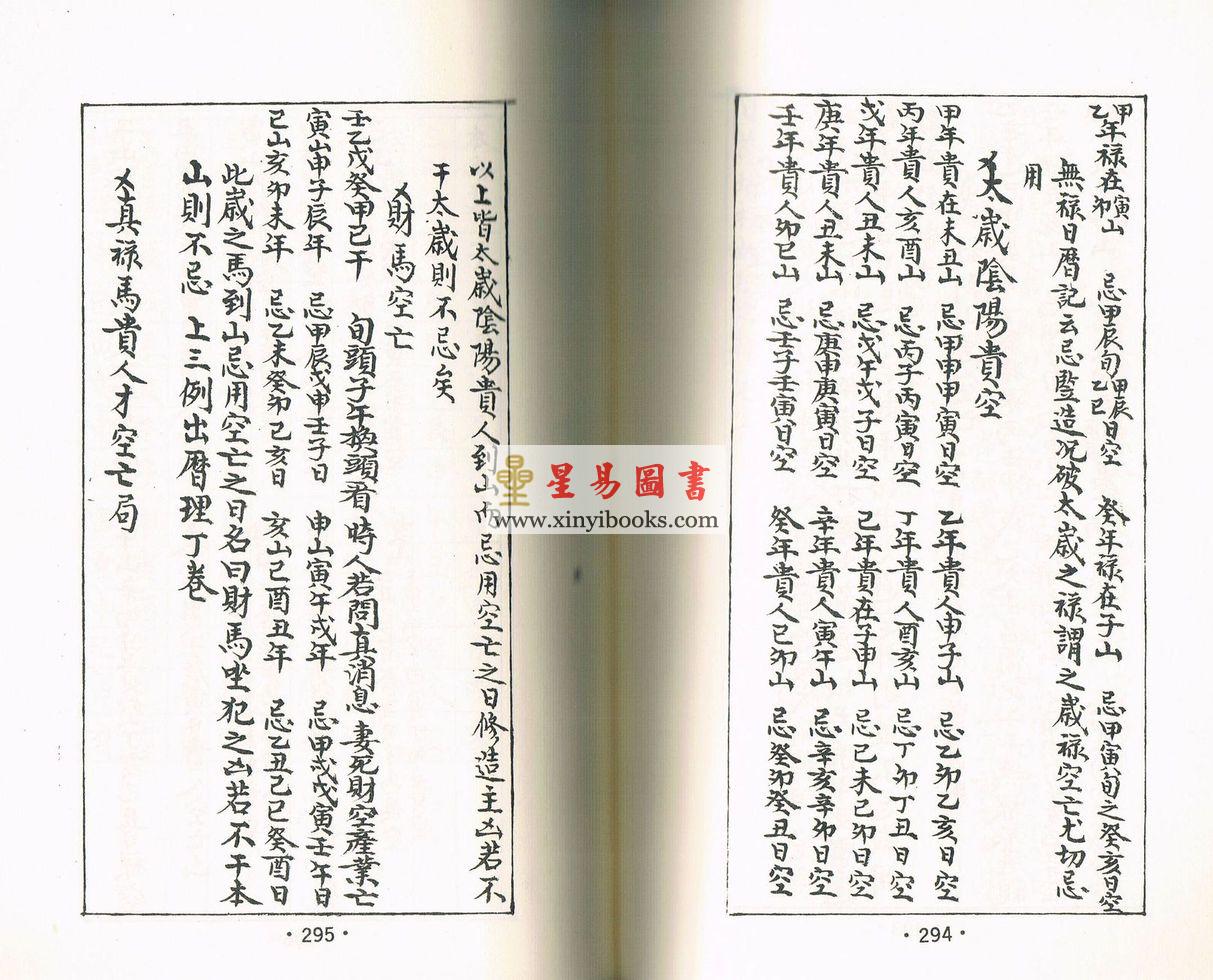 甲乙年祿在寅卯山 忌甲辰旬甲辰乙巳日空 癸年祿在子山 忌甲寅旬之癸亥日空
無祿日暦記云忌豎造况破太歲之祿謂之歲祿空亡尤切忌
用
太歲陰陽貴空
甲年貴在未丑山 忌甲申甲寅日空 乙年貴人申子山 忌乙卯乙亥日空
丙年貴人亥酉山 忌丙子丙寅日空 丁年貴人酉亥山 忌丁卯丁丑日空
戊年貴人丑未山 忌戊午戊子日空 己年貴在子申山 忌己未己卯日空
庚年貴人丑未山 忌庚申庚寅日空 辛年貴人寅午山 忌辛亥辛卯日空
壬年貴人卯巳山 忌壬子壬寅日空 癸年貴人巳卯山 忌癸卯癸丑日空
·294·
以上皆太歲陰陽貴人到山 忌用空亡之日修造主凶若不
干太歲則不忌矣
財馬空亡
壬乙戊癸甲己干 旬頭子午換頭看 時人若問真消息 妻死財空產業亡
寅山申子辰年 忌甲辰戊申壬子日 申山寅午戌年 忌甲戌戊寅壬午日
巳山亥卯未年 忌乙未癸卯己亥日 亥山巳酉丑年 忌乙丑己巳癸酉日
此歲之馬到山忌用空亡之日名曰財馬坐犯之凶若不干本
山則不忌 上三例出暦理丁卷
真祿馬貴人才空亡局
·295·
星易圖書
www.xinyibooks.com